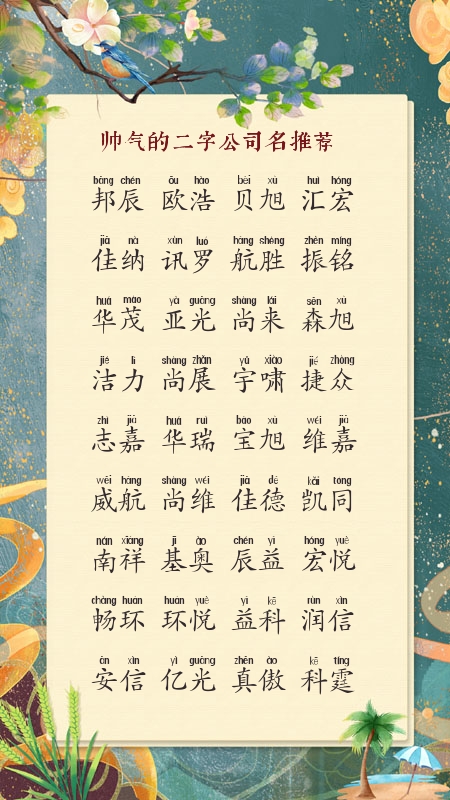 帅气的二字公司名推荐
bāng chén ōu hào bèi xù huì hóng
邦辰 欧浩 贝旭 汇宏
jiā nà xùn luó háng shèng zhèn míng
佳纳 讯罗 航胜 振铭
huá mào yà guāng shàng lái sēn xù
华茂 亚光 尚来 森旭
jié lì shàng zhǎn yǔ xiào jié zhòng
洁力 尚展 宇啸 捷众
zhì jiā huá ruì bǎo xù wéi jiā
志嘉 华瑞 宝旭 维嘉
wēi háng shàng wéi jiā dé kǎi tóng
威航 尚维 佳德 凯同
nán xiáng jī ào chén yì hóng yuè
南祥 基奥 辰益 宏悦
chàng huán huán yuè yì kē rùn xìn
畅环 环悦 益科 润信
ān xìn yì guāng zhēn ào kē tíng
安信 亿光 真傲 科霆